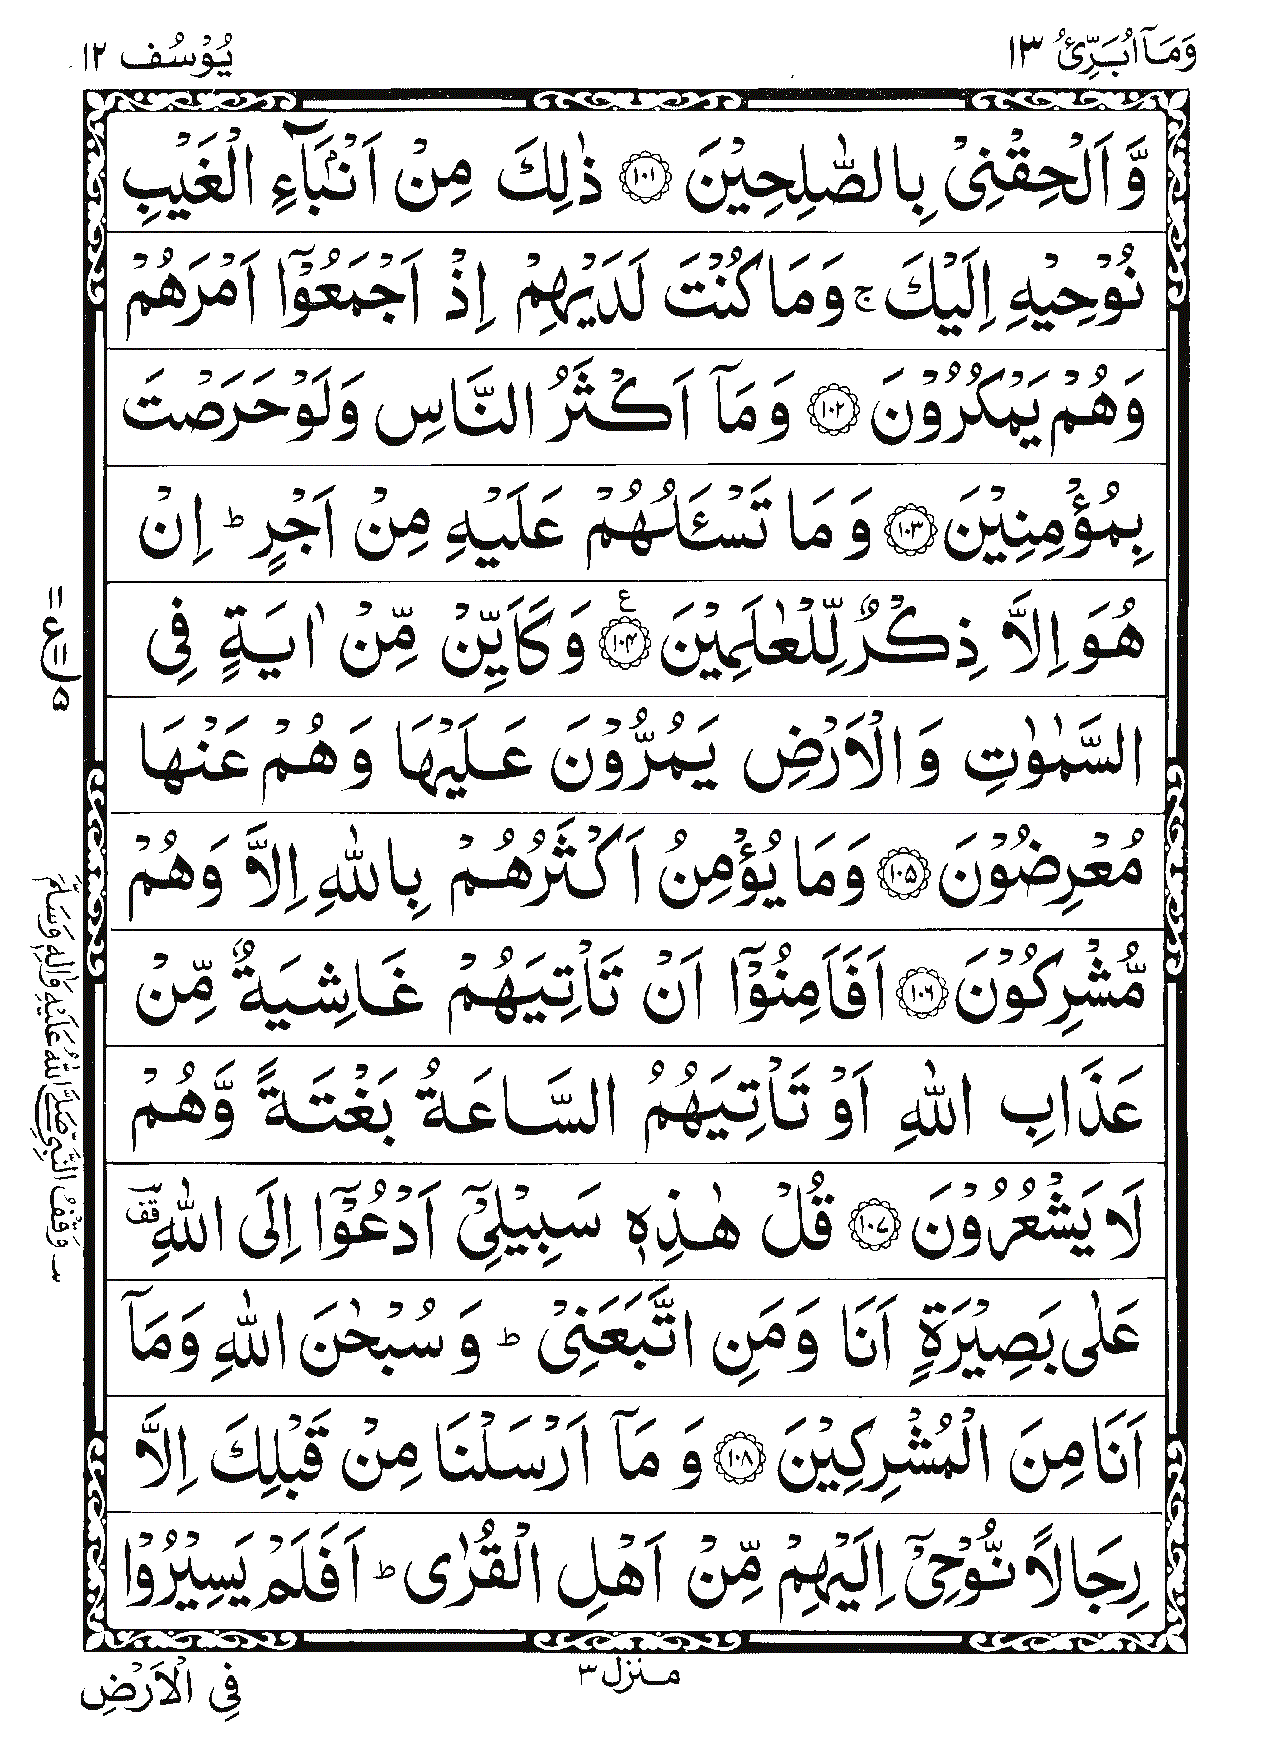 وَمَاۤ اُبَرِّئُ ١٣
يُوْسُف ١٢
وَّ اَلْحِقْنِىْ بِالصّٰلِحِيْنَ ‏﴿١٠١﴾‏ ذٰلِكَ مِنْ اَنْۢبَآءِ الْغَيْبِ
نُوْحِيْهِ اِلَيْكَ ۚ وَمَا كُنْتَ لَدَيْهِمْ اِذْ اَجْمَعُوْۤا اَمْرَهُمْ
وَهُمْ يَمْكُرُوْنَ ‏﴿١٠٢﴾‏ وَ مَاۤ اَكْثَرُ النَّاسِ وَلَوْ حَرَصْتَ
بِمُؤْمِنِيْنَ ‏﴿١٠٣﴾‏ وَ مَا تَسْـَٔـلُهُمْ عَلَيْهِ مِنْ اَجْرٍ ؕ اِنْ
هُوَ اِلَّا ذِكْرٌ لِّلْعٰلَمِيْنَ ‏﴿١٠٤﴾‏ ع وَكَاَيِّنْ مِّنْ اٰيَةٍ فِى
السَّمٰوٰتِ وَ الْاَرْضِ يَمُرُّوْنَ عَلَيْهَا وَ هُمْ عَنْهَا
مُعْرِضُوْنَ ‏﴿١٠٥﴾‏ وَمَا يُؤْمِنُ اَكْثَرُهُمْ بِاللّٰهِ اِلَّا وَهُمْ
مُّشْرِكُوْنَ ‏﴿١٠٦﴾‏ اَفَاَمِنُوْۤا اَنْ تَاْتِيَهُمْ غَاشِيَةٌ مِّنْ
عَذَابِ اللّٰهِ اَوْ تَاْتِيَهُمُ السَّاعَةُ بَغْتَةً وَّهُمْ
لَا يَشْعُرُوْنَ ‏﴿١٠٧﴾‏ قُلْ هٰذِهٖ سَبِيْلِىْۤ اَدْعُوْۤا اِلَى اللّٰهِ ؔ قف
عَلٰى بَصِيْرَةٍ اَنَا وَ مَنِ اتَّبَعَنِىْ ؕ وَ سُبْحٰنَ اللّٰهِ وَمَاۤ
اَنَا مِنَ الْمُشْرِكِيْنَ ‏﴿١٠٨﴾‏ وَ مَاۤ اَرْسَلْنَا مِنْ قَبْلِكَ اِلَّا
رِجَالًا نُّوْحِىْۤ اِلَيْهِمْ مِّنْ اَهْلِ الْقُرٰى ؕ اَفَلَمْ يَسِيْرُوْا
منزل ٣
فِى الْاَرْضِ
١١ ع ١١ ٥
وَقْفُ النَّبِىِّ صَلَّى اللّٰهُ عَلَيْهِ وَاٰلِهٖ وَسَلَّمَ